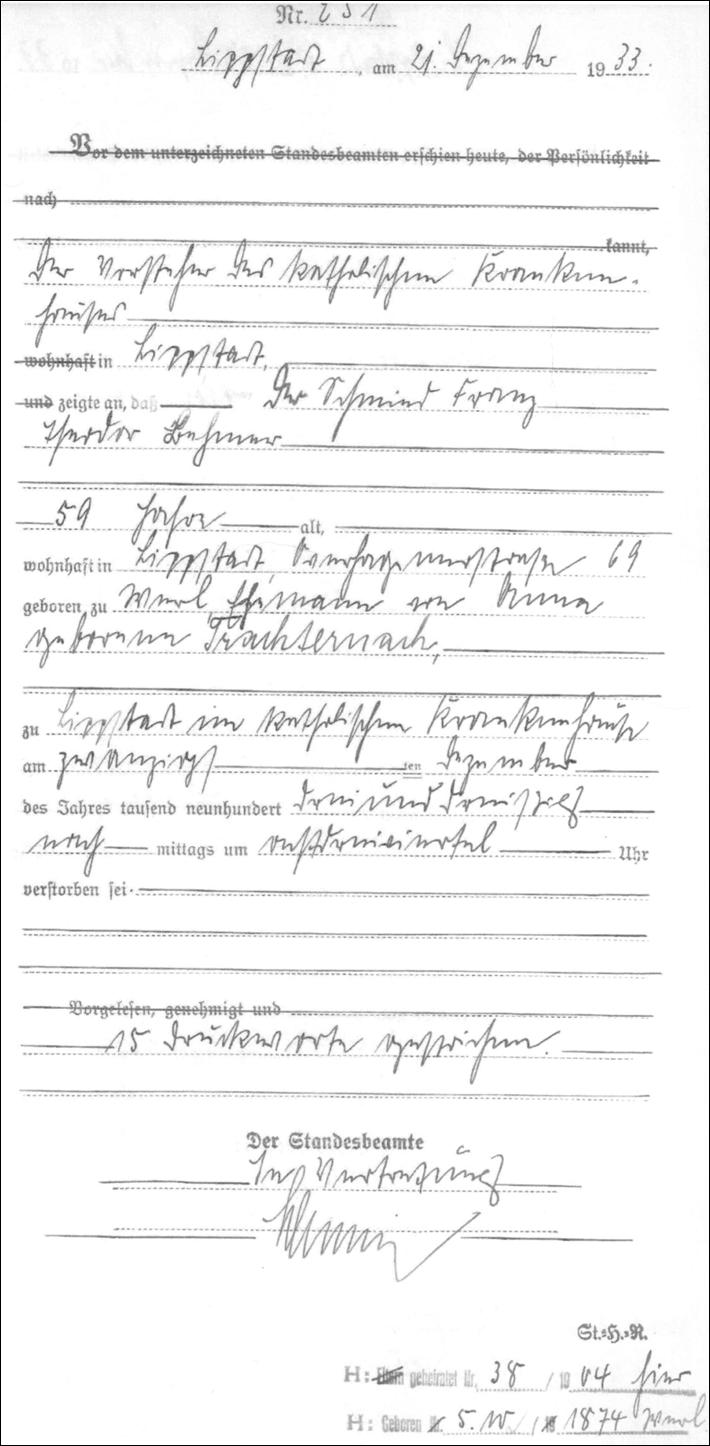 Nr. 251
Lippstadt, am 21. Dezember 1933.
Vor dem unterzeichneten Standesbeamten erschien heute, der Persönlichkeit
nach
kannt,
Der Vorsteher des katholischen Kranken-
hauses
wohnhaft in Lippstadt,
und zeigte an, daß der Schmied Franz
Theodor Behmer
59 Jahre alt,
wohnhaft in Lippstadt, Overhagenerstrasse 69
geboren zu Werl, Ehemann von Anna
geborenen Trachternach,
zu Lippstadt im katholischen Krankenhause
am zwanzigsten Dezember
des Jahres tausend neunhundert dreiunddreissig
nachmittags um achtdreiviertel Uhr
verstorben sei.
Vorgelesen, genehmigt und
15 Druckworte gestrichen.
Der Standesbeamte
In Vertretung
St.=H.=R.
H: Eltern geheiratet Nr. 38 / 1904 hier
H: Geboren Nr. 5.10 / 18 1874 Werl